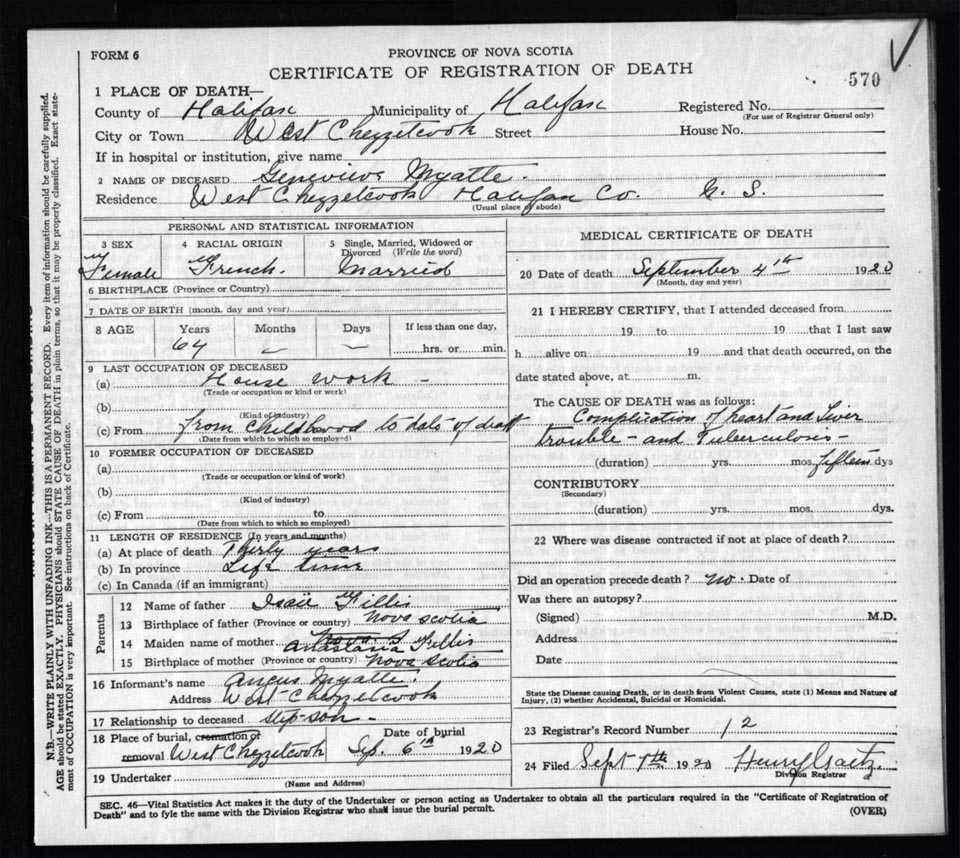 FORM 6
PROVINCE OF NOVA SCOTIA
CERTIFICATE OF REGISTRATION OF DEATH
570
1 PLACE OF DEATH—
County of Halifax Municipality of Halifax Registered No.
(For use of Registrar General only)
City or Town West Chezzetcook Street House No.
If in hospital or institution, give name
2 NAME OF DECEASED Genevieve Myatte.
Residence West Chezzetcook Halifax Co. N. S.
(Usual place of abode)
PERSONAL AND STATISTICAL INFORMATION
3 SEX 4 RACIAL ORIGIN 5 Single, Married, Widowed or Divorced (Write the word)
Female French. Married
6 BIRTHPLACE (Province or Country)
7 DATE OF BIRTH (month, day and year)
8 AGE Years Months Days If less than one day,
64 — — hrs. or min.
9 LAST OCCUPATION OF DECEASED
(a) House work –
(Trade or occupation or kind or work)
(b)
(Kind of industry)
(c) From from Childhood to date of death
(Date from which to which so employed)
10 FORMER OCCUPATION OF DECEASED
(a)
(Trade or occupation or kind of work)
(b)
(Kind of industry)
(c) From to
(Date from which to which so employed)
11 LENGTH OF RESIDENCE (In years and months)
(a) At place of death Therty years
(b) In province Life time
(c) In Canada (if an immigrant)
Parents
12 Name of father Isaïe Fillis
13 Birthplace of father (Province or country) Nova Scotia
14 Maiden name of mother Nova S Anastasia Fillis
15 Birthplace of mother (Province or country) Nova Scotia
16 Informant's name Angus Myatte.
Address West Chezzetcook
17 Relationship to deceased step-son –
18 Place of burial, cremation or removal West Chezzetcook Date of burial Sep. 6th 1920
19 Undertaker
(Name and Address)
MEDICAL CERTIFICATE OF DEATH
20 Date of death September 4th 1920
(Month, day and year)
21 I HEREBY CERTIFY, that I attended deceased from
19 to 19 that I last saw
h alive on 19 and that death occurred, on the
date stated above, at m.
The CAUSE OF DEATH was as follows:
Complication of heart and Liver
trouble – and Tuberculosis –
(duration) yrs. mos. fifteen dys
CONTRIBUTORY
(Secondary)
(duration) yrs. mos. dys.
22 Where was disease contracted if not at place of death?
Did an operation precede death? no. Date of
Was there an autopsy?
(Signed) M.D.
Address
Date
State the Disease causing Death, or in death from Violent Causes, state (1) Means and Nature of
Injury, (2) whether Accidental, Suicidal or Homicidal.
23 Registrar's Record Number 12
24 Filed Sept 7th 1920 Henry Gaetz
Division Registrar
SEC. 46—Vital Statistics Act makes it the duty of the Undertaker or person acting as Undertaker to obtain all the particulars required in the "Certificate of Registration of
Death" and to fyle the same with the Division Registrar who shall issue the burial permit. (OVER)
N.B.—WRITE PLAINLY WITH UNFADING INK—THIS IS A PERMANENT RECORD. Every item of information should be carefully supplied.
AGE should be stated EXACTLY. PHYSICIANS should STATE CAUSE OF DEATH in plain terms, so that it may be properly classified. Exact state-
ment of OCCUPATION is very important. See instructions on back of Certificate.